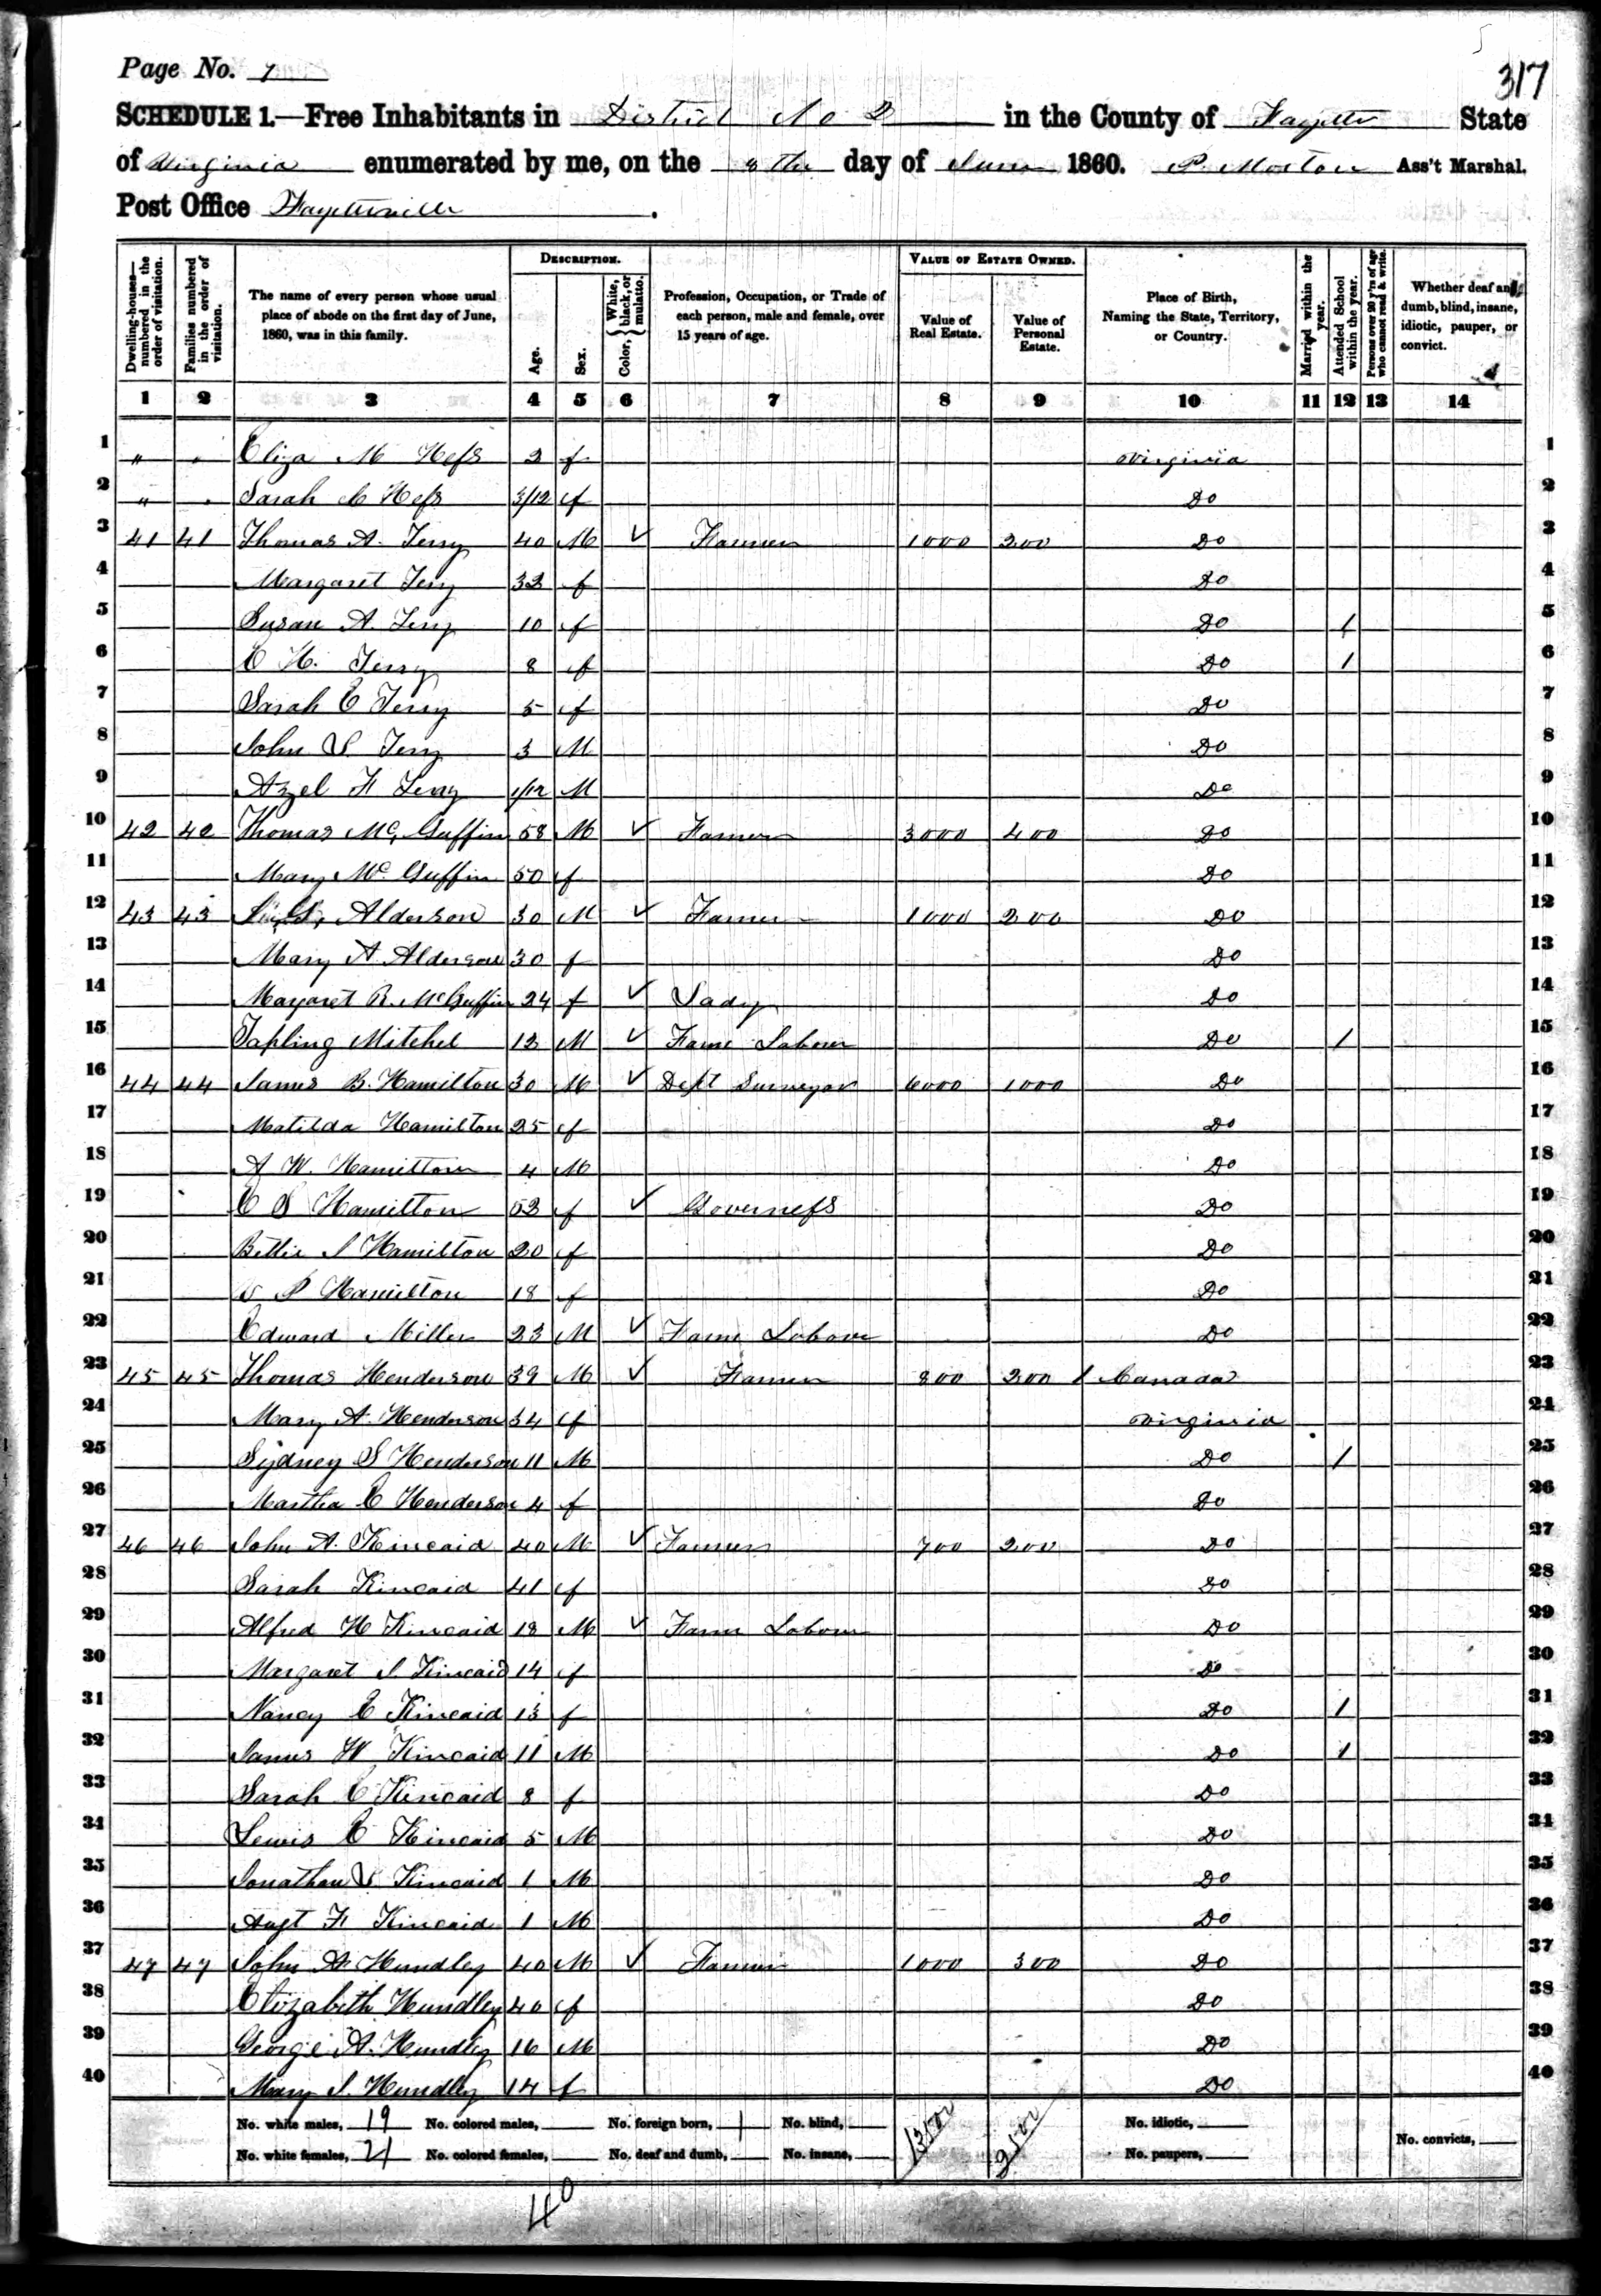 5
317
Page No. 7
SCHEDULE 1.—Free Inhabitants in District No 2 in the County of Fayette State
of Virginia enumerated by me, on the 8th day of June 1860. P. Morton Ass't Marshal.
Post Office Fayetteville.
DESCRIPTION. VALUE OF ESTATE OWNED.
Dwelling-houses—numbered in the order of visitation.
Families numbered in the order of visitation.
The name of every person whose usual place of abode on the first day of June, 1860, was in this family.
Age.
Sex.
Color, { White, black, or mulatto.
Profession, Occupation, or Trade of each person, male and female, over 15 years of age.
Value of Real Estate.
Value of Personal Estate.
Place of Birth, Naming the State, Territory, or Country.
Married within the year.
Attended School within the year.
Persons over 20 y'rs of age who cannot read & write.
Whether deaf and dumb, blind, insane, idiotic, pauper, or convict.
1 2 3 4 5 6 7 8 9 10 11 12 13 14
1 " " Eliza M Hess 2 f Virginia 1
2 " " Sarah C Hess 3/12 f Do 2
3 41 41 Thomas A. Terry 40 M ✓ Farmer 1000 200 Do 3
4 Margaret Terry 32 f Do 4
5 Susan A. Terry 10 f Do 1 5
6 C H. Terry 8 f Do 1 6
7 Sarah E Terry 5 f Do 7
8 John S. Terry 3 M Do 8
9 Azel F Terry 1/12 M Do 9
10 42 42 Thomas Mc Guffin 58 M ✓ Farmer 3000 400 Do 10
11 Mary Mc Guffin 50 f Do 11
12 43 43 Alderson 30 M ✓ Farmer 1000 200 Do 12
13 Mary A Alderson 30 f Do 13
14 Margaret R. McGuffin 24 f ✓ Lady Do 14
15 Tapling Mitchel 12 M ✓ Farm Labour Do 1 15
16 44 44 James B. Hamilton 30 M ✓ Dept Surveyor 6000 1000 Do 16
17 Matilda Hamilton 25 f Do 17
18 A W. Hamilton 4 M Do 18
19 C S Hamilton 52 f ✓ Governess Do 19
20 Bettie S Hamilton 20 f Do 20
21 P Hamilton 18 f Do 21
22 Edward Miller 23 M ✓ Farm Labour Do 22
23 45 45 Thomas Henderson 39 M ✓ Farmer 800 200 / Canada 23
24 Mary A. Henderson 34 f Virginia 24
25 Sydney S Henderson 11 M Do 1 25
26 Martha E Henderson 4 f Do 26
27 46 46 John A. Kincaid 40 M ✓ Farmer 700 200 Do 27
28 Sarah Kincaid 41 f Do 28
29 Alfred H Kincaid 18 M ✓ Farm Labour Do 29
30 Margaret S. Kincaid 14 f Do 30
31 Nancy E Kincaid 13 f Do 1 31
32 James W Kincaid 11 M Do 1 32
33 Sarah E Kincaid 8 f Do 33
34 Lewis C Kincaid 5 M Do 34
35 Jonathan S Kincaid 1 M Do 35
36 Augt F Kincaid 1 M Do 36
37 47 47 John A Hundley 40 M ✓ Farmer 1000 300 Do 37
38 Elizabeth Hundley 40 f Do 38
39 George A. Hundley 16 M Do 39
40 Mary S. Hundley 14 f Do 40
No. white males, 19 No. colored males, No. foreign born, 1 No. blind, 13500 2500 No. idiotic,
No. white females, 21 No. colored females, No. deaf and dumb, No. insane, No. paupers, No. convicts,
40